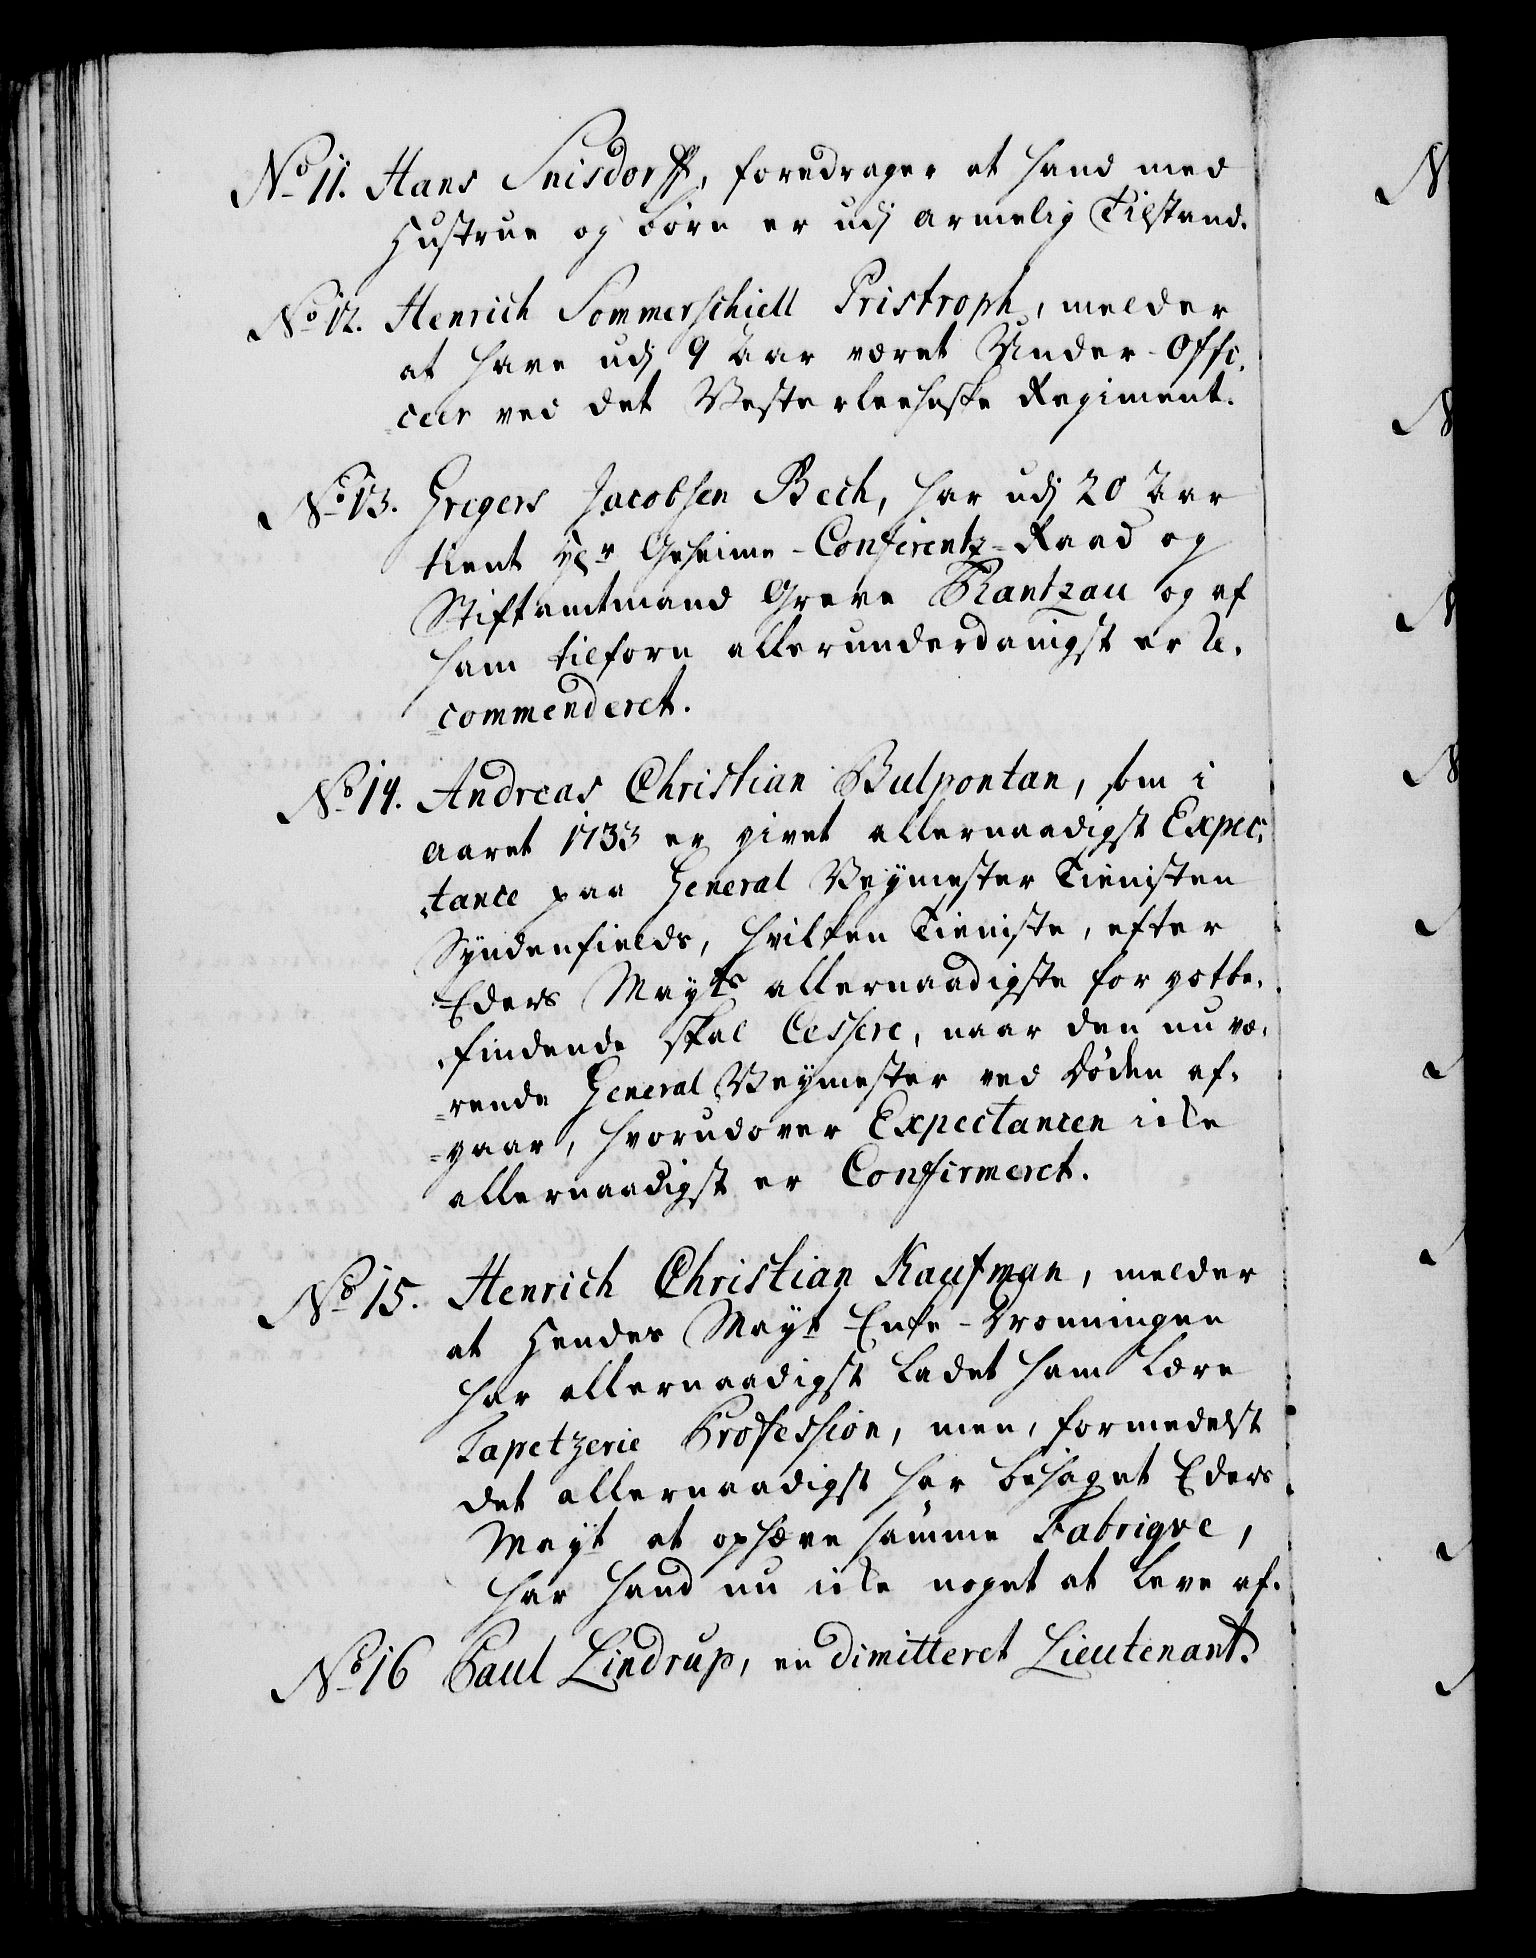 No 11. Hans Snisdorff, foredrager at hand med
Hustrue og børn er udj armelig Tilstand.
No 12. Henrich Sommerschiell Pristroph, melder
at have udj 9 Aar været Under-Offi,
=ceer ved det Vesterleehuske Regiment.
No 13. Gregers Jacobsen Bech, har udj 20 Aar
tient hr Geheime-Conferentz-Raad og
Stiftamtmand Greve Rantzau og af
ham tilforn allerunderdanigst er re,
=commenderet.
No 14. Andreas Christian Bulpontan, som i
Aaret 1733 er givet allernaadigst Expec,
,tance paa General Veymester Tienisten
Syndenfields, hvilken Tieniste, efter
Eders Mayts allernaadigste for gotbe,
,findende skal Cessere, naar den nu væ,
=rende General Veymester ved Døden af,
=gaar, hvorudover Expectancen icke
allernaadigst er Confirmeret.
No 15. Henrich Christian Kaufman, melder
at Hendes Mayt Enke-Dronningen
har allernaadigst ladet ham lære
Tapetzerie Profession, men, formedelst
det allernaadigst har behaget Eders
Mayt at ophæve samme Fabriqve,
har hand nu icke noget at leve af.
No 16 Paul Lindrup, en dimitteret Lieutenant.